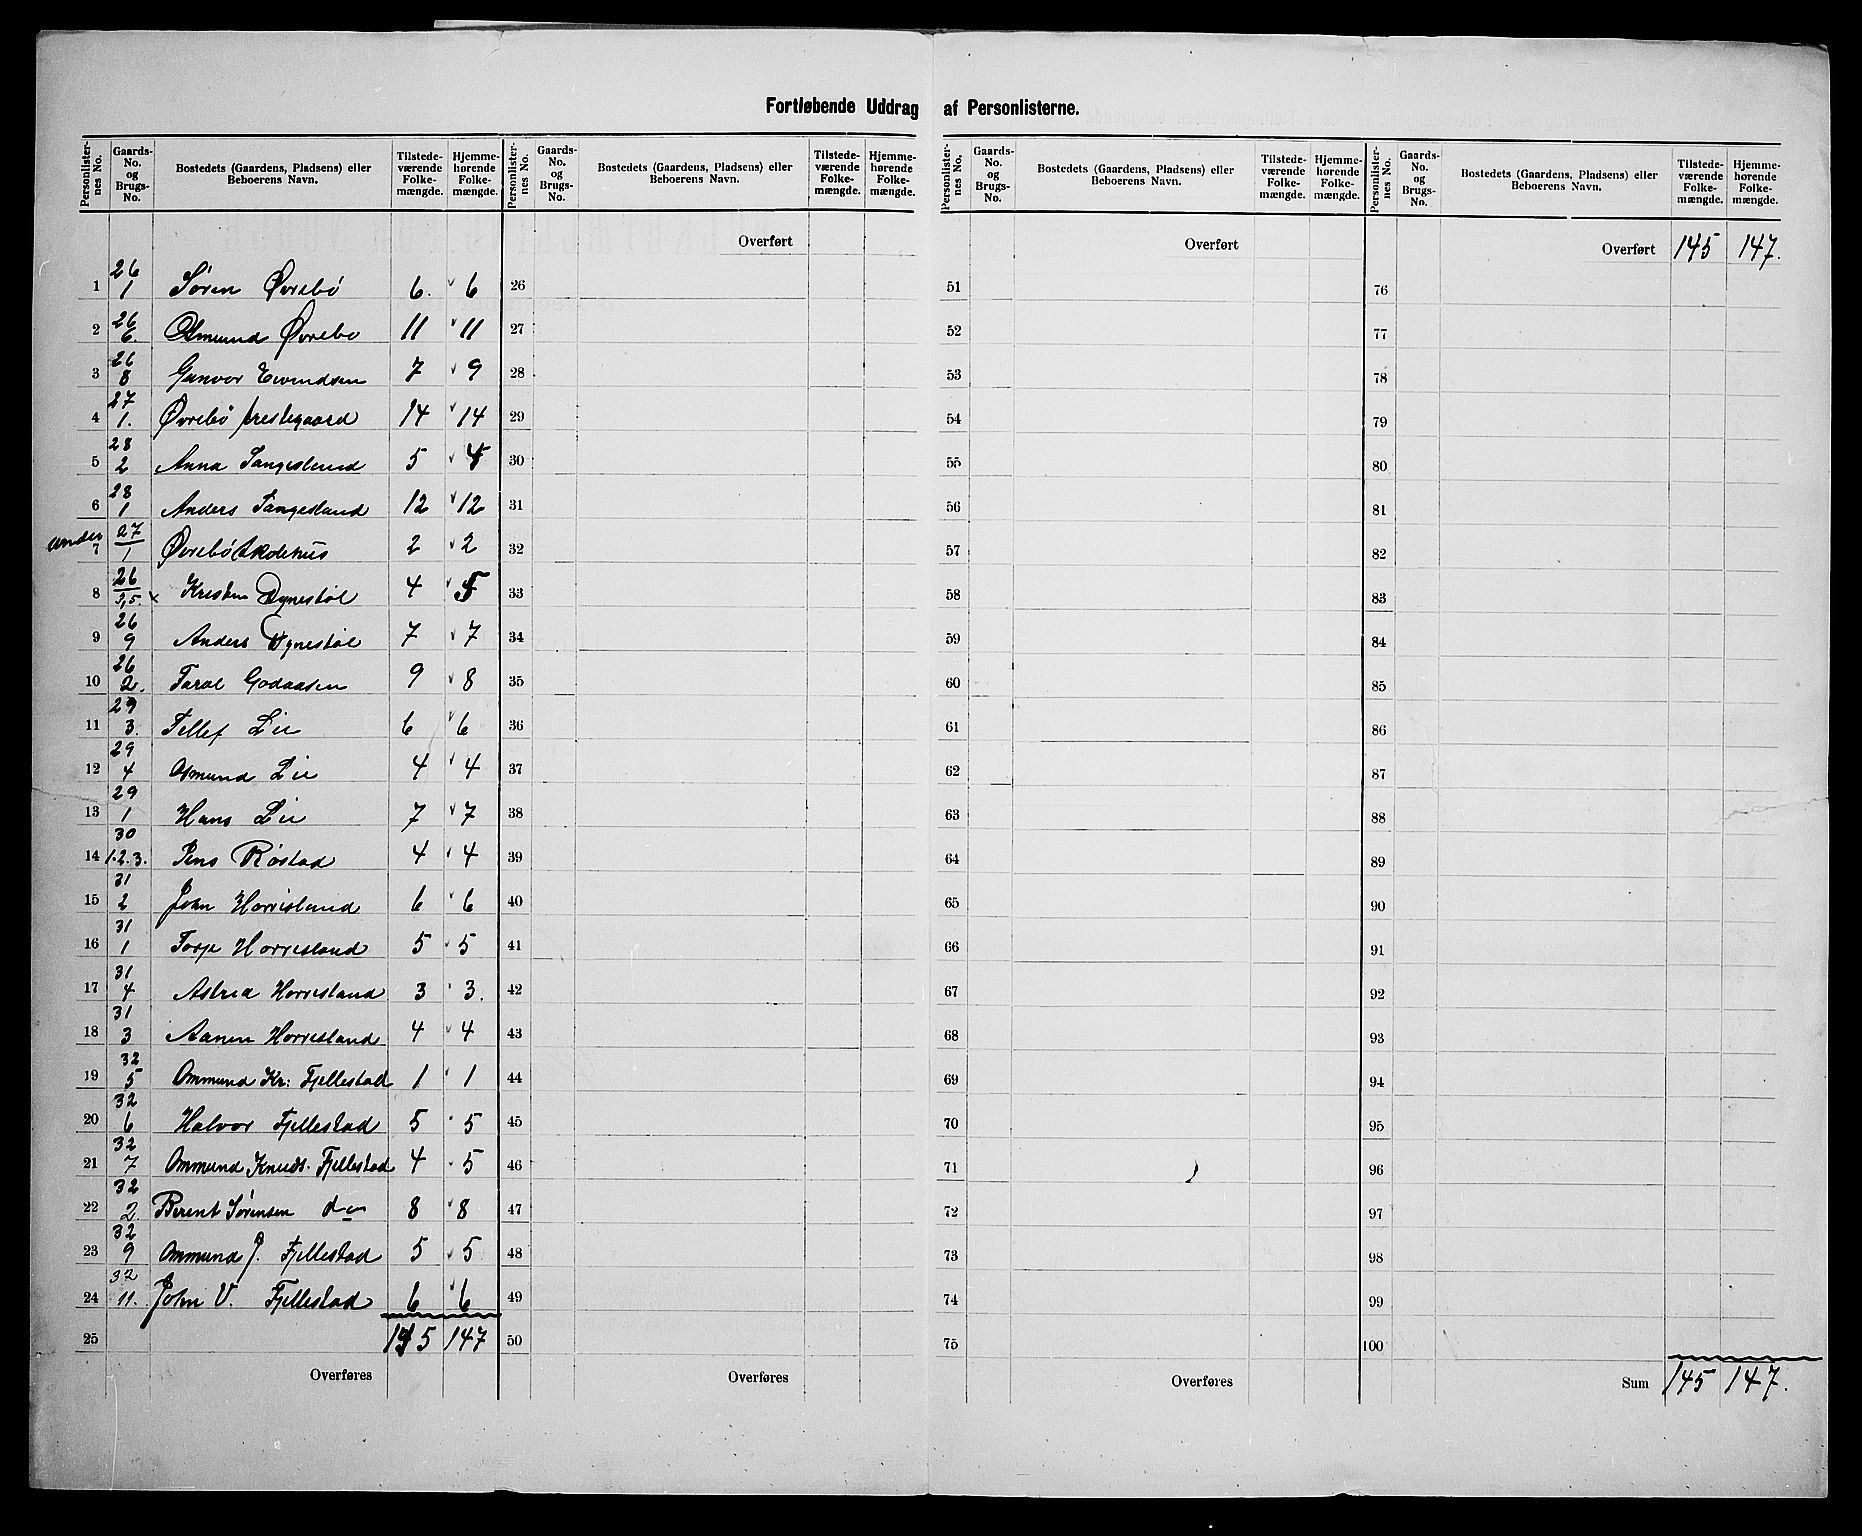 Fortløbende Uddrag af Personlisterne.
Personlister-nes No. | Gaards-No. og Brugs-No. | Bostedets (Gaardens, Pladsens) eller Beboerens Navn. | Tilstede-værende Folke-mængde. | Hjemme-hørende Folke-mængde. | Personlister-nes No. | Gaards-No. og Brugs-No. | Bostedets (Gaardens, Pladsens) eller Beboerens Navn. | Tilstede-værende Folke-mængde. | Hjemme-hørende Folke-mængde. | Personlister-nes No. | Gaards-No. og Brugs-No. | Bostedets (Gaardens, Pladsens) eller Beboerens Navn. | Tilstede-værende Folke-mængde. | Hjemme-hørende Folke-mængde. | Personlister-nes No. | Gaards-No. og Brugs-No. | Bostedets (Gaardens, Pladsens) eller Beboerens Navn. | Tilstede-værende Folke-mængde. | Hjemme-hørende Folke-mængde.
Overført Overført Overført 145 147.
1 26/1 Søren Øvrebø 6. 6 26 51 76
2 26/6. Osmund Øvrebø 11 11 27 52 77
3 26/8 Gunvor Eivindsen 7 9 28 53 78
4 27/1. Øvrebø prestegaard 14 14 29 54 79
5 28/2 Anna Tangesland 5 30 55 80
6 28/1 Anders Tangesland 12 12 31 56 81
under 7 27/1 Øvrebø skolehus 2 2 32 57 82
8 26/3,5. x Kristen Dynestøl 4 5 33 58 83
9 26/9 Anders Dynestøl 7 7 34 59 84
10 26/2. Tarol Godaasen 9 8 35 60 85
11 29/3. Tellef Lie 6 6 36 61 86
12 29/4 Osmund Lie 4 4 37 62 87
13 29/1 Hans Lie 7 7 38 63 88
14 30/1.2.3. Jens Røstad 4 4 39 64 89
15 31/2 John Horrisland 6 6 40 65 90
16 31/1 Torje Horrisland 5 5 41 66 91
17 31/4 Astrid Horrisland 3 3. 42 67 92
18 31/3 Aanen Horrisland 4 4 43 68 93
19 32/5 Ommund Kr: Fjellestad 1 1 44 69 94
20 32/6 Halvor Fjellestad 5 5 45 70 95
21 32/7 Ommund Knuds. Fjellestad 4 5 46 71 96
22 32/2. Berent Sørensen do 8 8 47 72 97
23 32/9 Ommund J. Fjellestad 5 5 48 73 98
24 32/11. John V. Fjellestad 6 6 49 74 99
25 145 147 50 75 100
Overføres Overføres Overføres Sum 145 147.